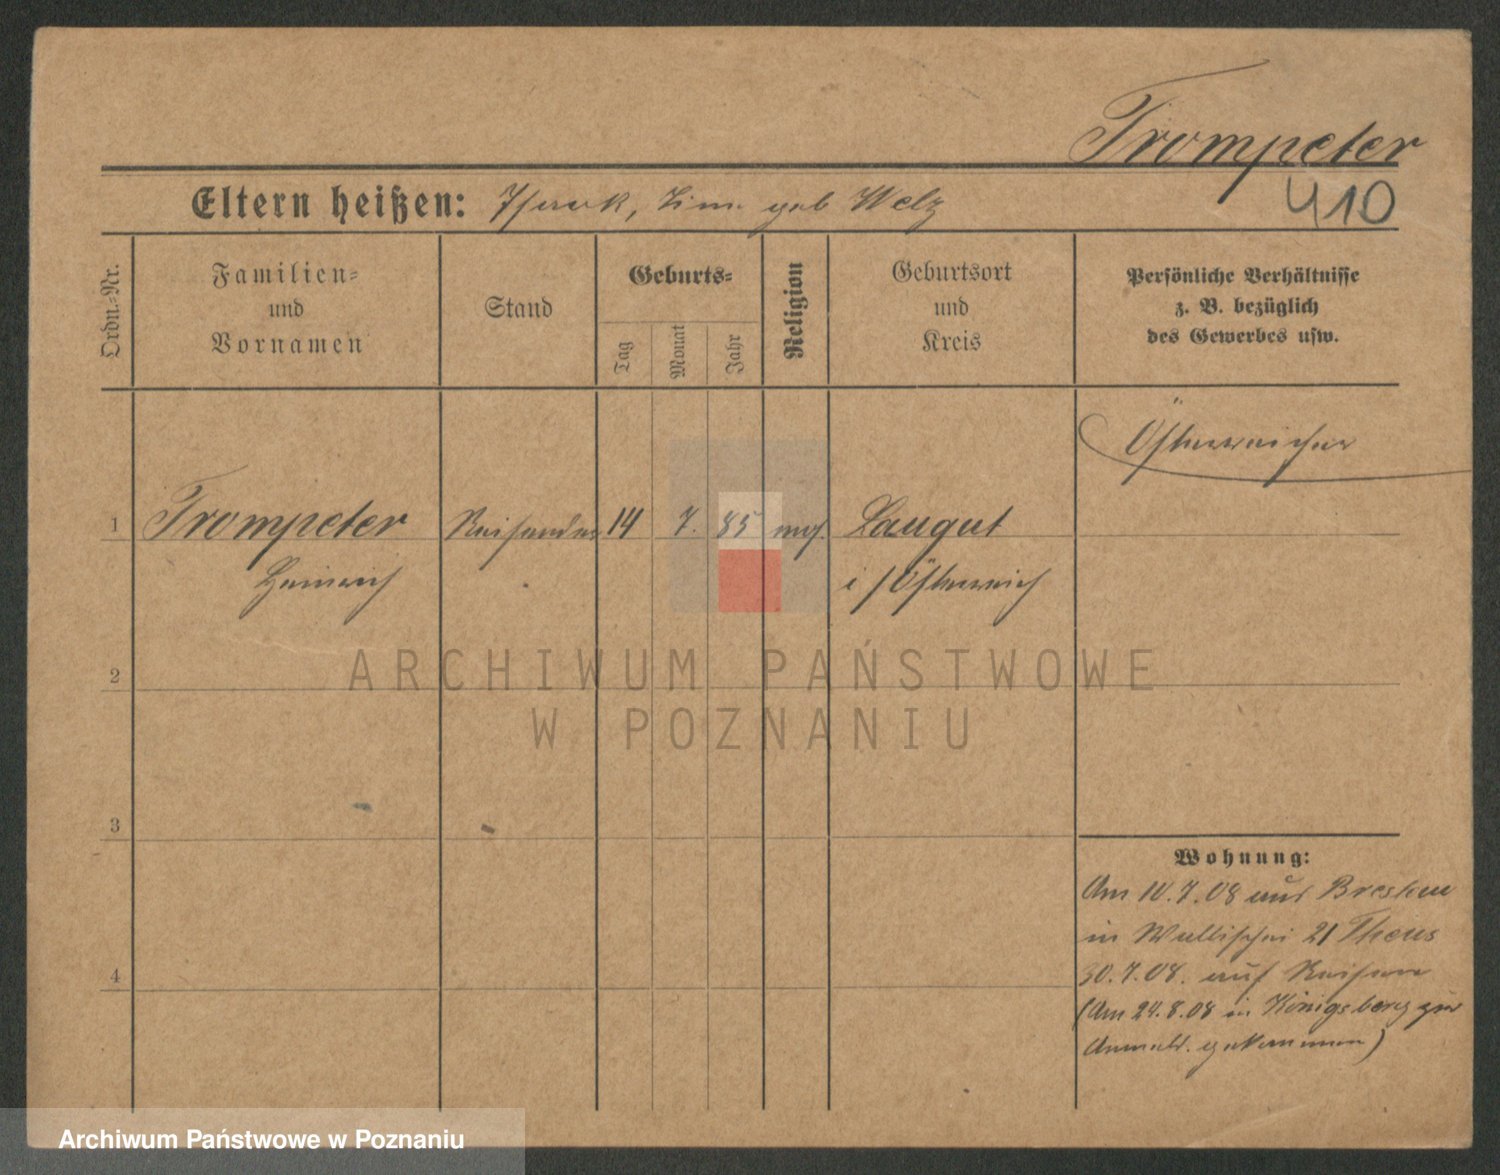 Trompeter
410
Eltern heißen: Isaak, geb Welz
Ordn.-Nr.
Familien-
und
Vornamen
Stand
Geburts-
Tag
Monat
Jahr
Religion
Geburtsort
und
Kreis
Persönliche Verhältnisse
z. B. bezüglich
des Gewerbes usw.
Österreicher
1 Trompeter Reisender 14 7. 85 mos. Laugut
Heinrich i/Österreich
2
3
4
Wohnung:
Am 10.7.08 aus Breslau
in Wallischei 21
30.7.08. auf Reisen
(Am 24.8.08 in Königsberg zur
Anmeld. gekommen)
ARCHIWUM PAŃSTWOWE
W POZNANIU
Archiwum Państwowe w Poznaniu